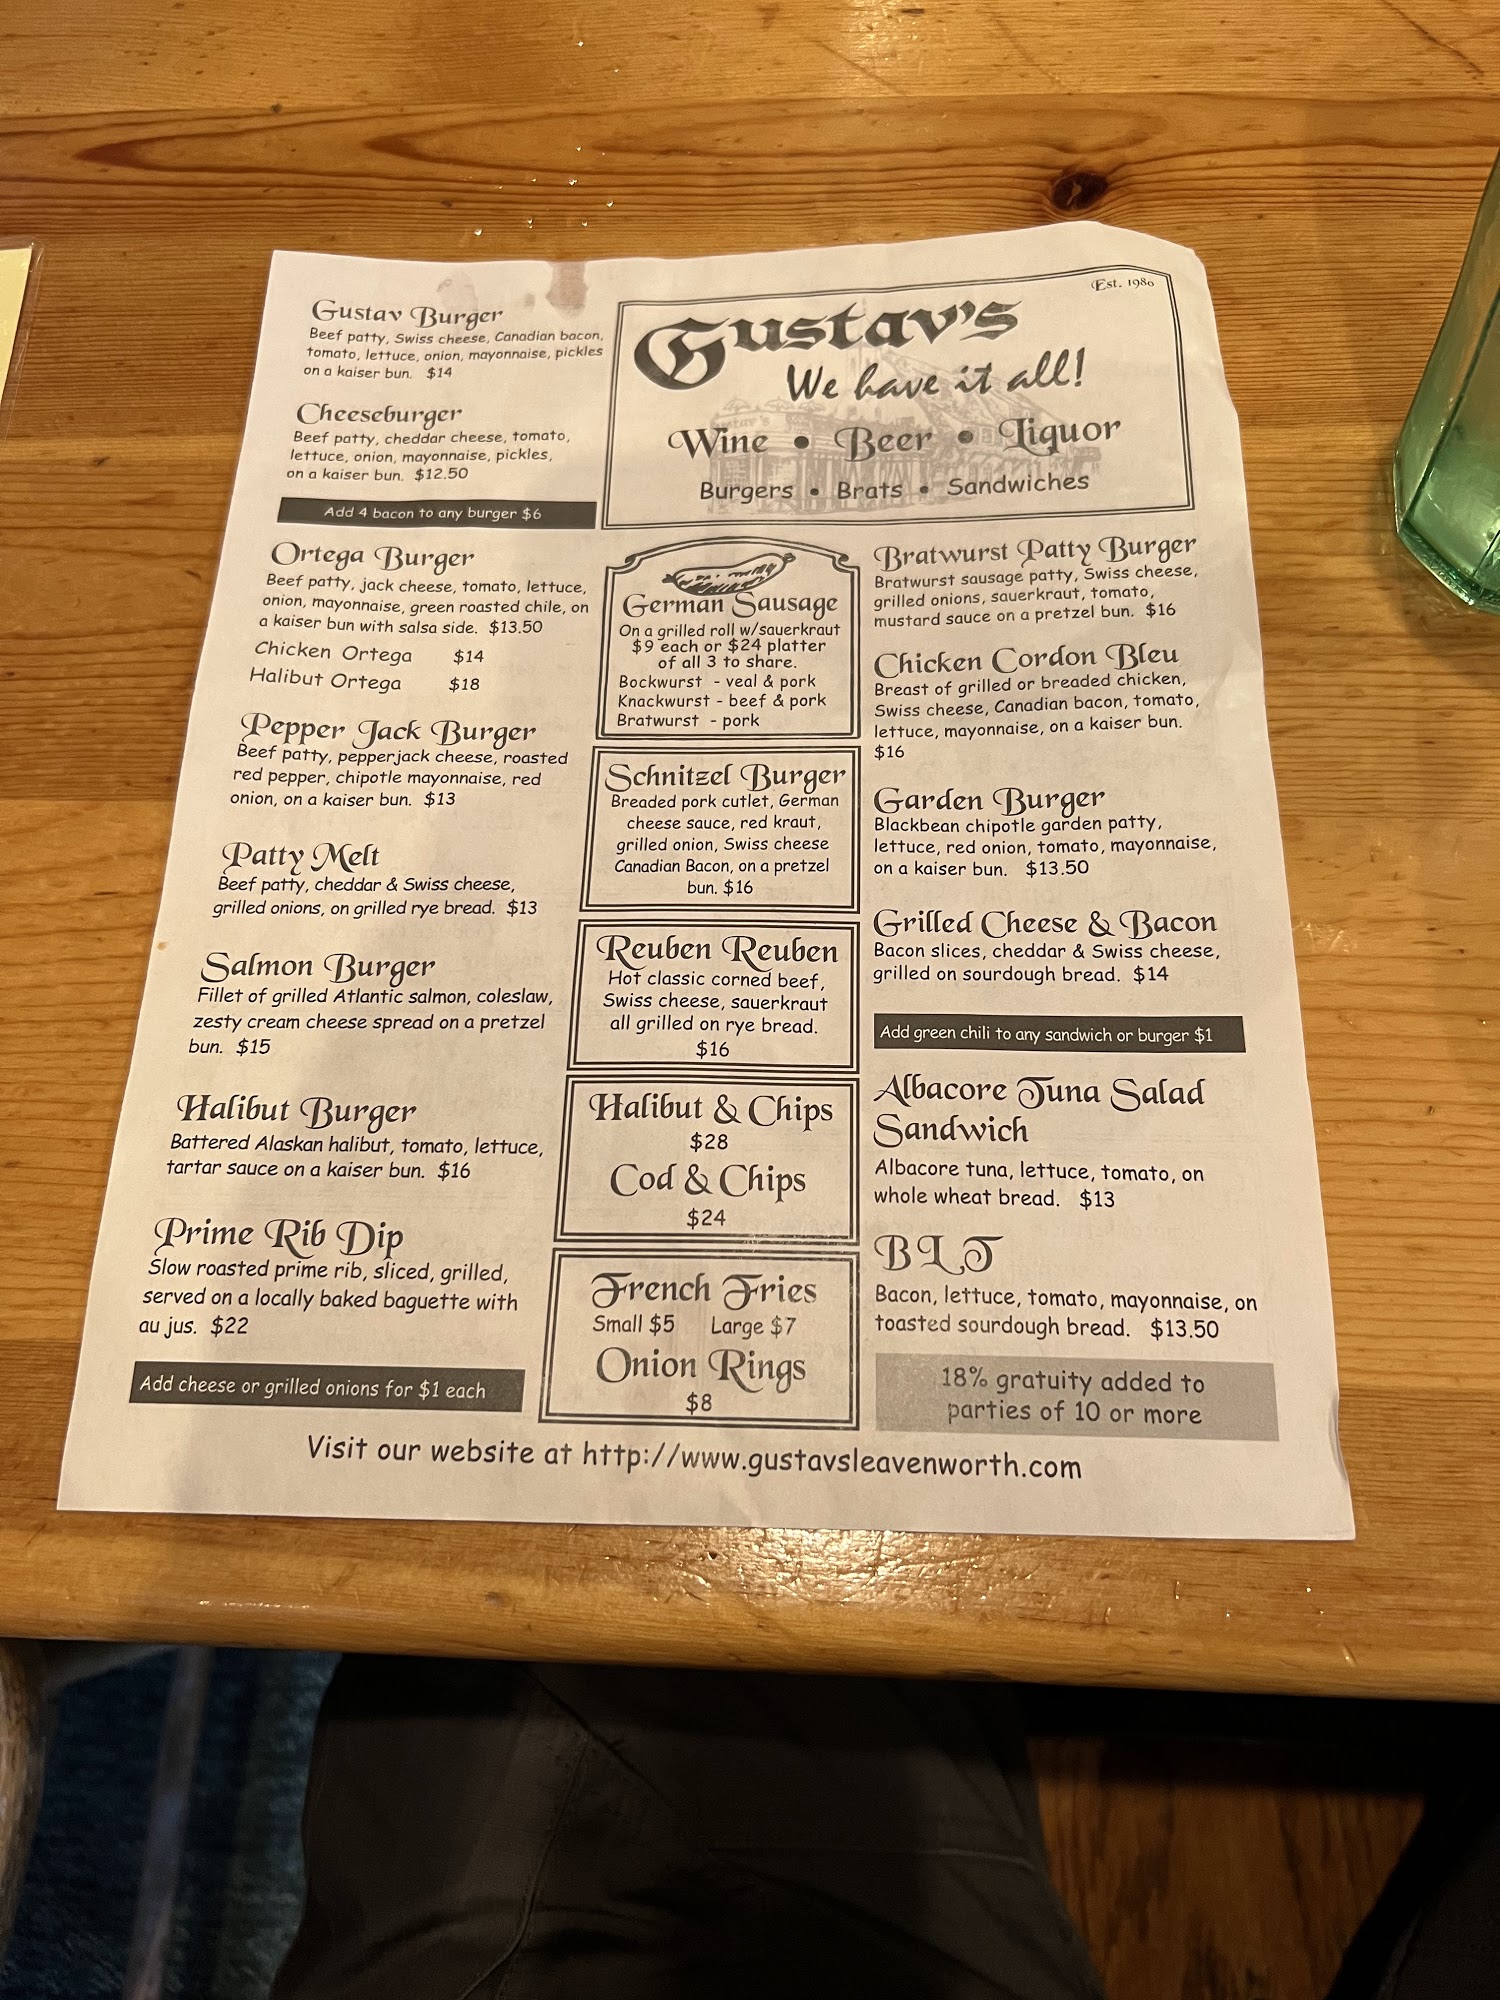 Gustav Burger
Beef patty, Swiss cheese, Canadian bacon,
tomato, lettuce, onion, mayonnaise, pickles
on a kaiser bun. $14
Cheeseburger
Beef patty, cheddar cheese, tomato,
lettuce, onion, mayonnaise, pickles,
on a kaiser bun. $12.50
Add 4 bacon to any burger $6
Ortega Burger
Beef patty, jack cheese, tomato, lettuce,
onion, mayonnaise, green roasted chile, on
a kaiser bun with salsa side. $13.50
Chicken Ortega $14
Halibut Ortega $18
Pepper Jack Burger
Beef patty, pepperjack cheese, roasted
red pepper, chipotle mayonnaise, red
onion, on a kaiser bun. $13
Patty Melt
Beef patty, cheddar & Swiss cheese,
grilled onions, on grilled rye bread. $13
Salmon Burger
Fillet of grilled Atlantic salmon, coleslaw,
zesty cream cheese spread on a pretzel
bun. $15
Halibut Burger
Battered Alaskan halibut, tomato, lettuce,
tartar sauce on a kaiser bun. $16
Prime Rib Dip
Slow roasted prime rib, sliced, grilled,
served on a locally baked baguette with
au jus. $22
Add cheese or grilled onions for $1 each
Est. 1980
Gustav's
We have it all!
Wine • Beer • Liquor
Burgers • Brats • Sandwiches
German Sausage
On a grilled roll w/sauerkraut
$9 each or $24 platter
of all 3 to share.
Bockwurst - veal & pork
Knackwurst - beef & pork
Bratwurst - pork
Schnitzel Burger
Breaded pork cutlet, German
cheese sauce, red kraut,
grilled onion, Swiss cheese
Canadian Bacon, on a pretzel
bun. $16
Reuben Reuben
Hot classic corned beef,
Swiss cheese, sauerkraut
all grilled on rye bread.
$16
Halibut & Chips
$28
Cod & Chips
$24
French Fries
Small $5 Large $7
Onion Rings
$8
Bratwurst Patty Burger
Bratwurst sausage patty, Swiss cheese,
grilled onions, sauerkraut, tomato,
mustard sauce on a pretzel bun. $16
Chicken Cordon Bleu
Breast of grilled or breaded chicken,
Swiss cheese, Canadian bacon, tomato,
lettuce, mayonnaise, on a kaiser bun.
$16
Garden Burger
Blackbean chipotle garden patty,
lettuce, red onion, tomato, mayonnaise,
on a kaiser bun. $13.50
Grilled Cheese & Bacon
Bacon slices, cheddar & Swiss cheese,
grilled on sourdough bread. $14
Add green chili to any sandwich or burger $1
Albacore Tuna Salad
Sandwich
Albacore tuna, lettuce, tomato, on
whole wheat bread. $13
BLT
Bacon, lettuce, tomato, mayonnaise, on
toasted sourdough bread. $13.50
18% gratuity added to
parties of 10 or more
Visit our website at http://www.gustavsleavenworth.com